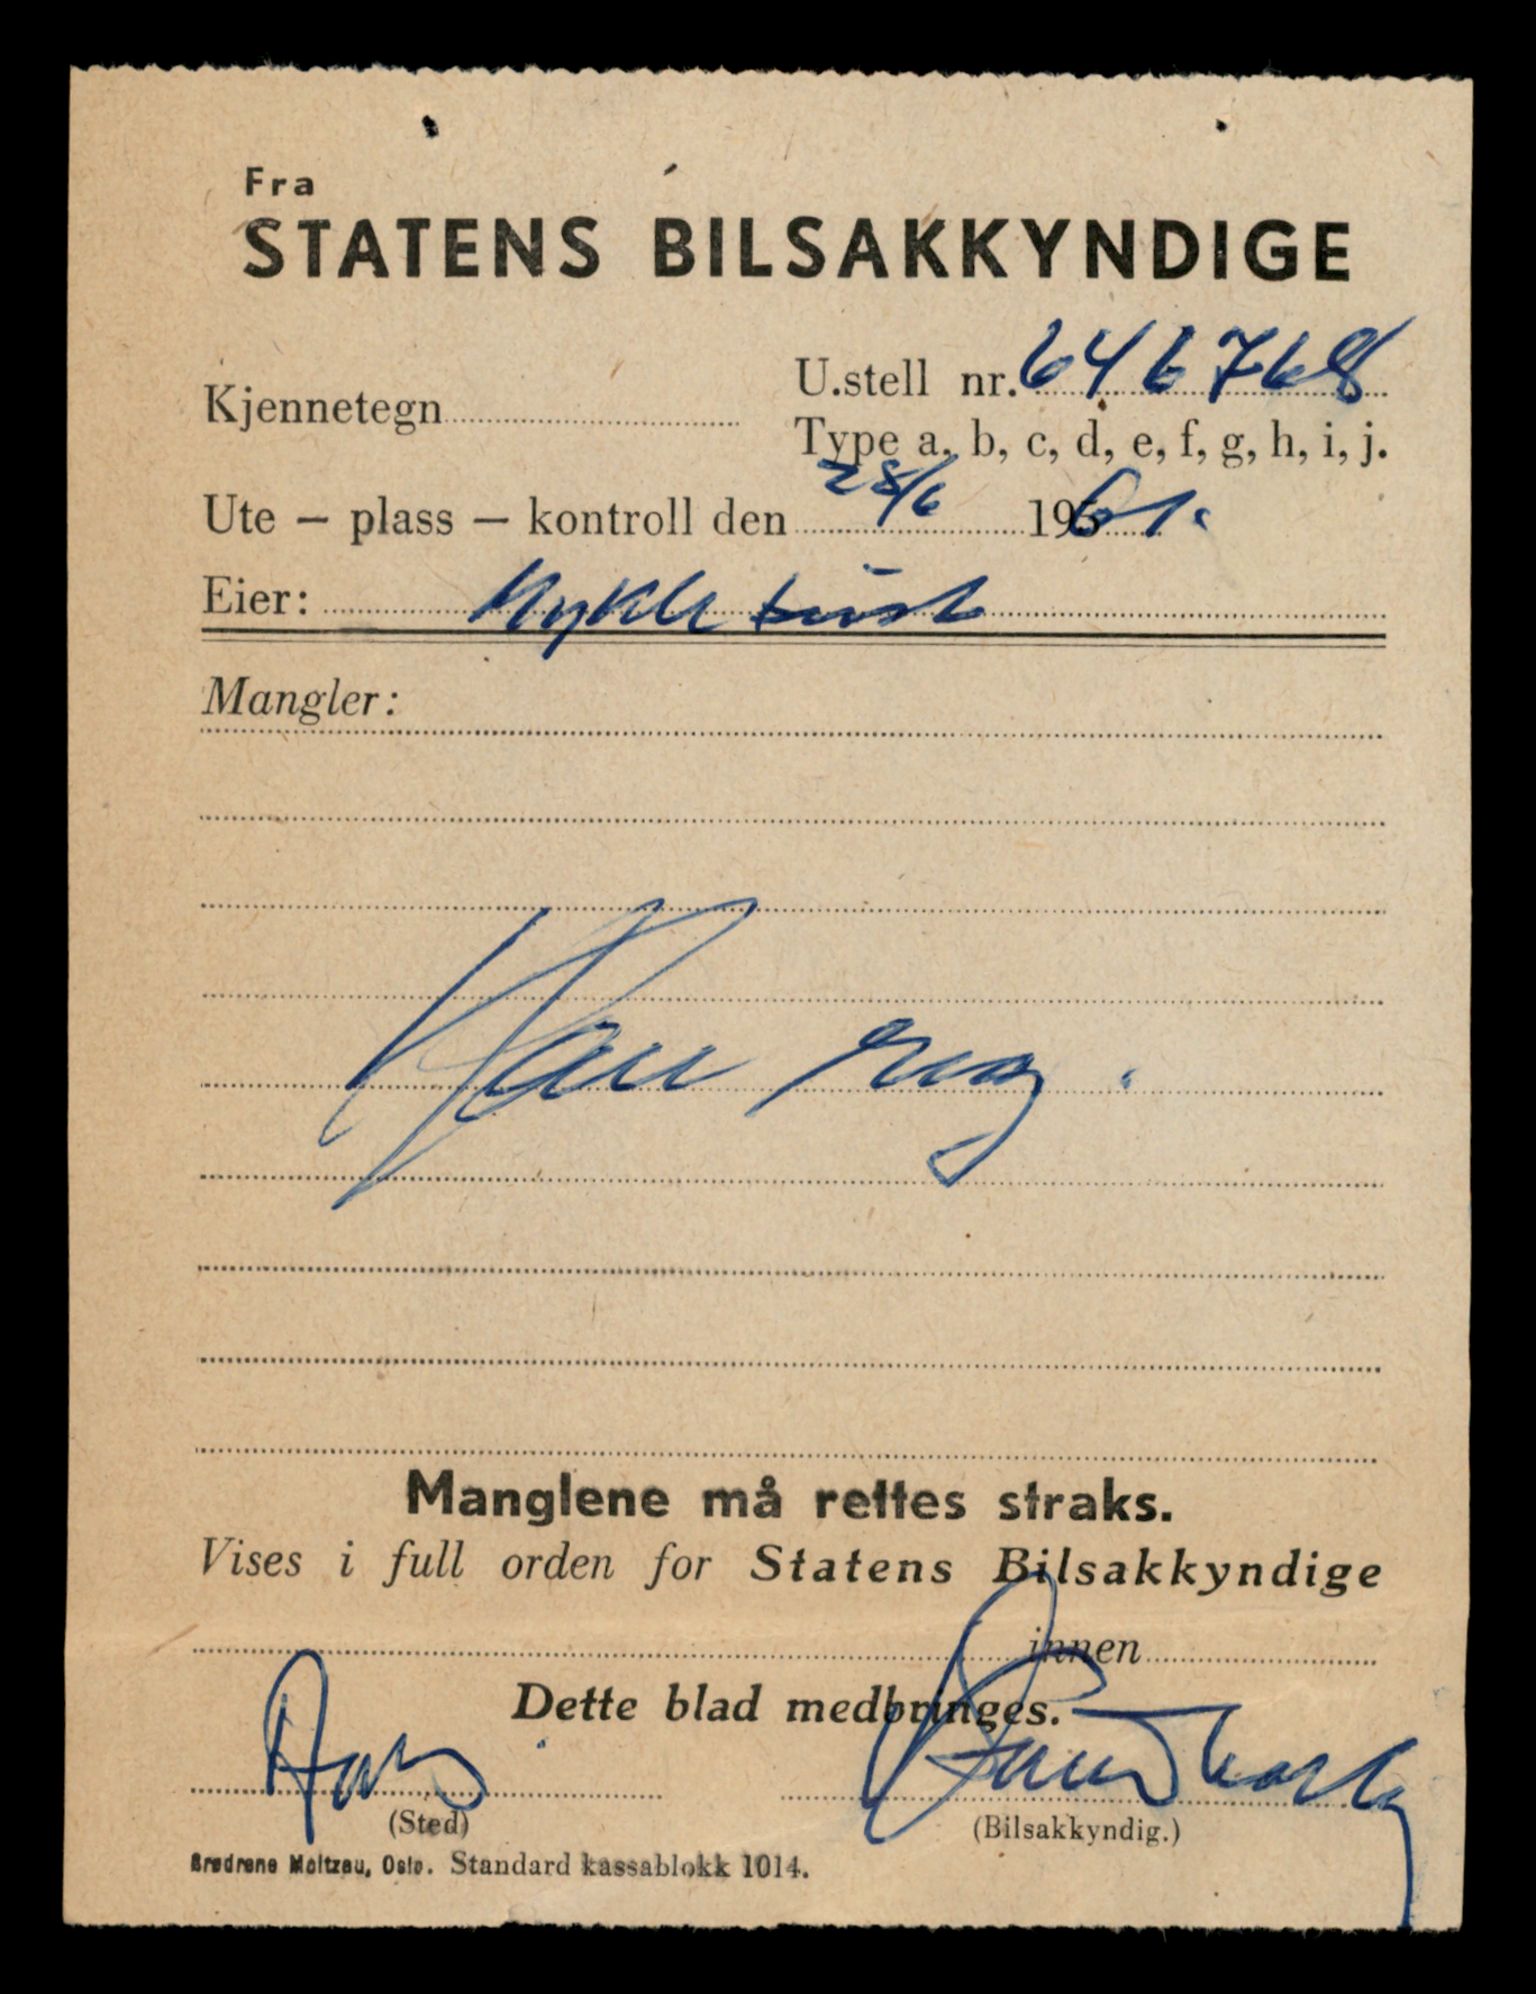 Fra
STATENS BILSAKKYNDIGE
U.stell nr. 646768
Kjennetegn
Type a, b, c, d, e, f, g, h, i, j.
Ute – plass – kontroll den 28/6 1961.
Eier: Myklebust
Mangler:
Manglene må rettes straks.
Vises i full orden for Statens Bilsakkyndige
innen
Dette blad medbringes.
(Sted)
(Bilsakkyndig.)
Brødrene Moltzau, Oslo. Standard kassablokk 1014.